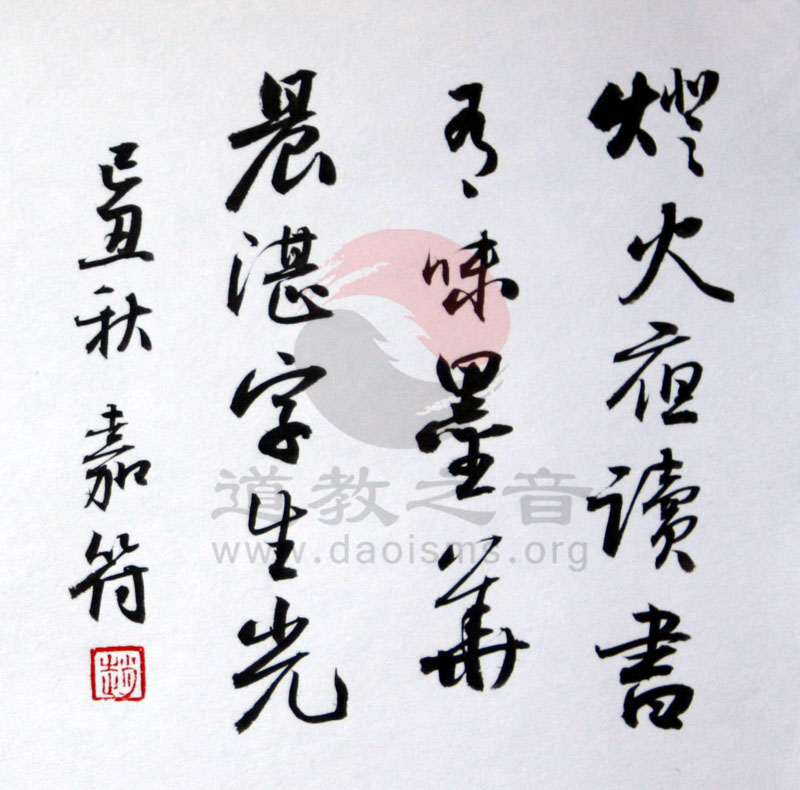 燈火夜讀書
有味墨華
晨湛字生光
己丑秋 嘉符
趙
道教之音
www.daoisms.org